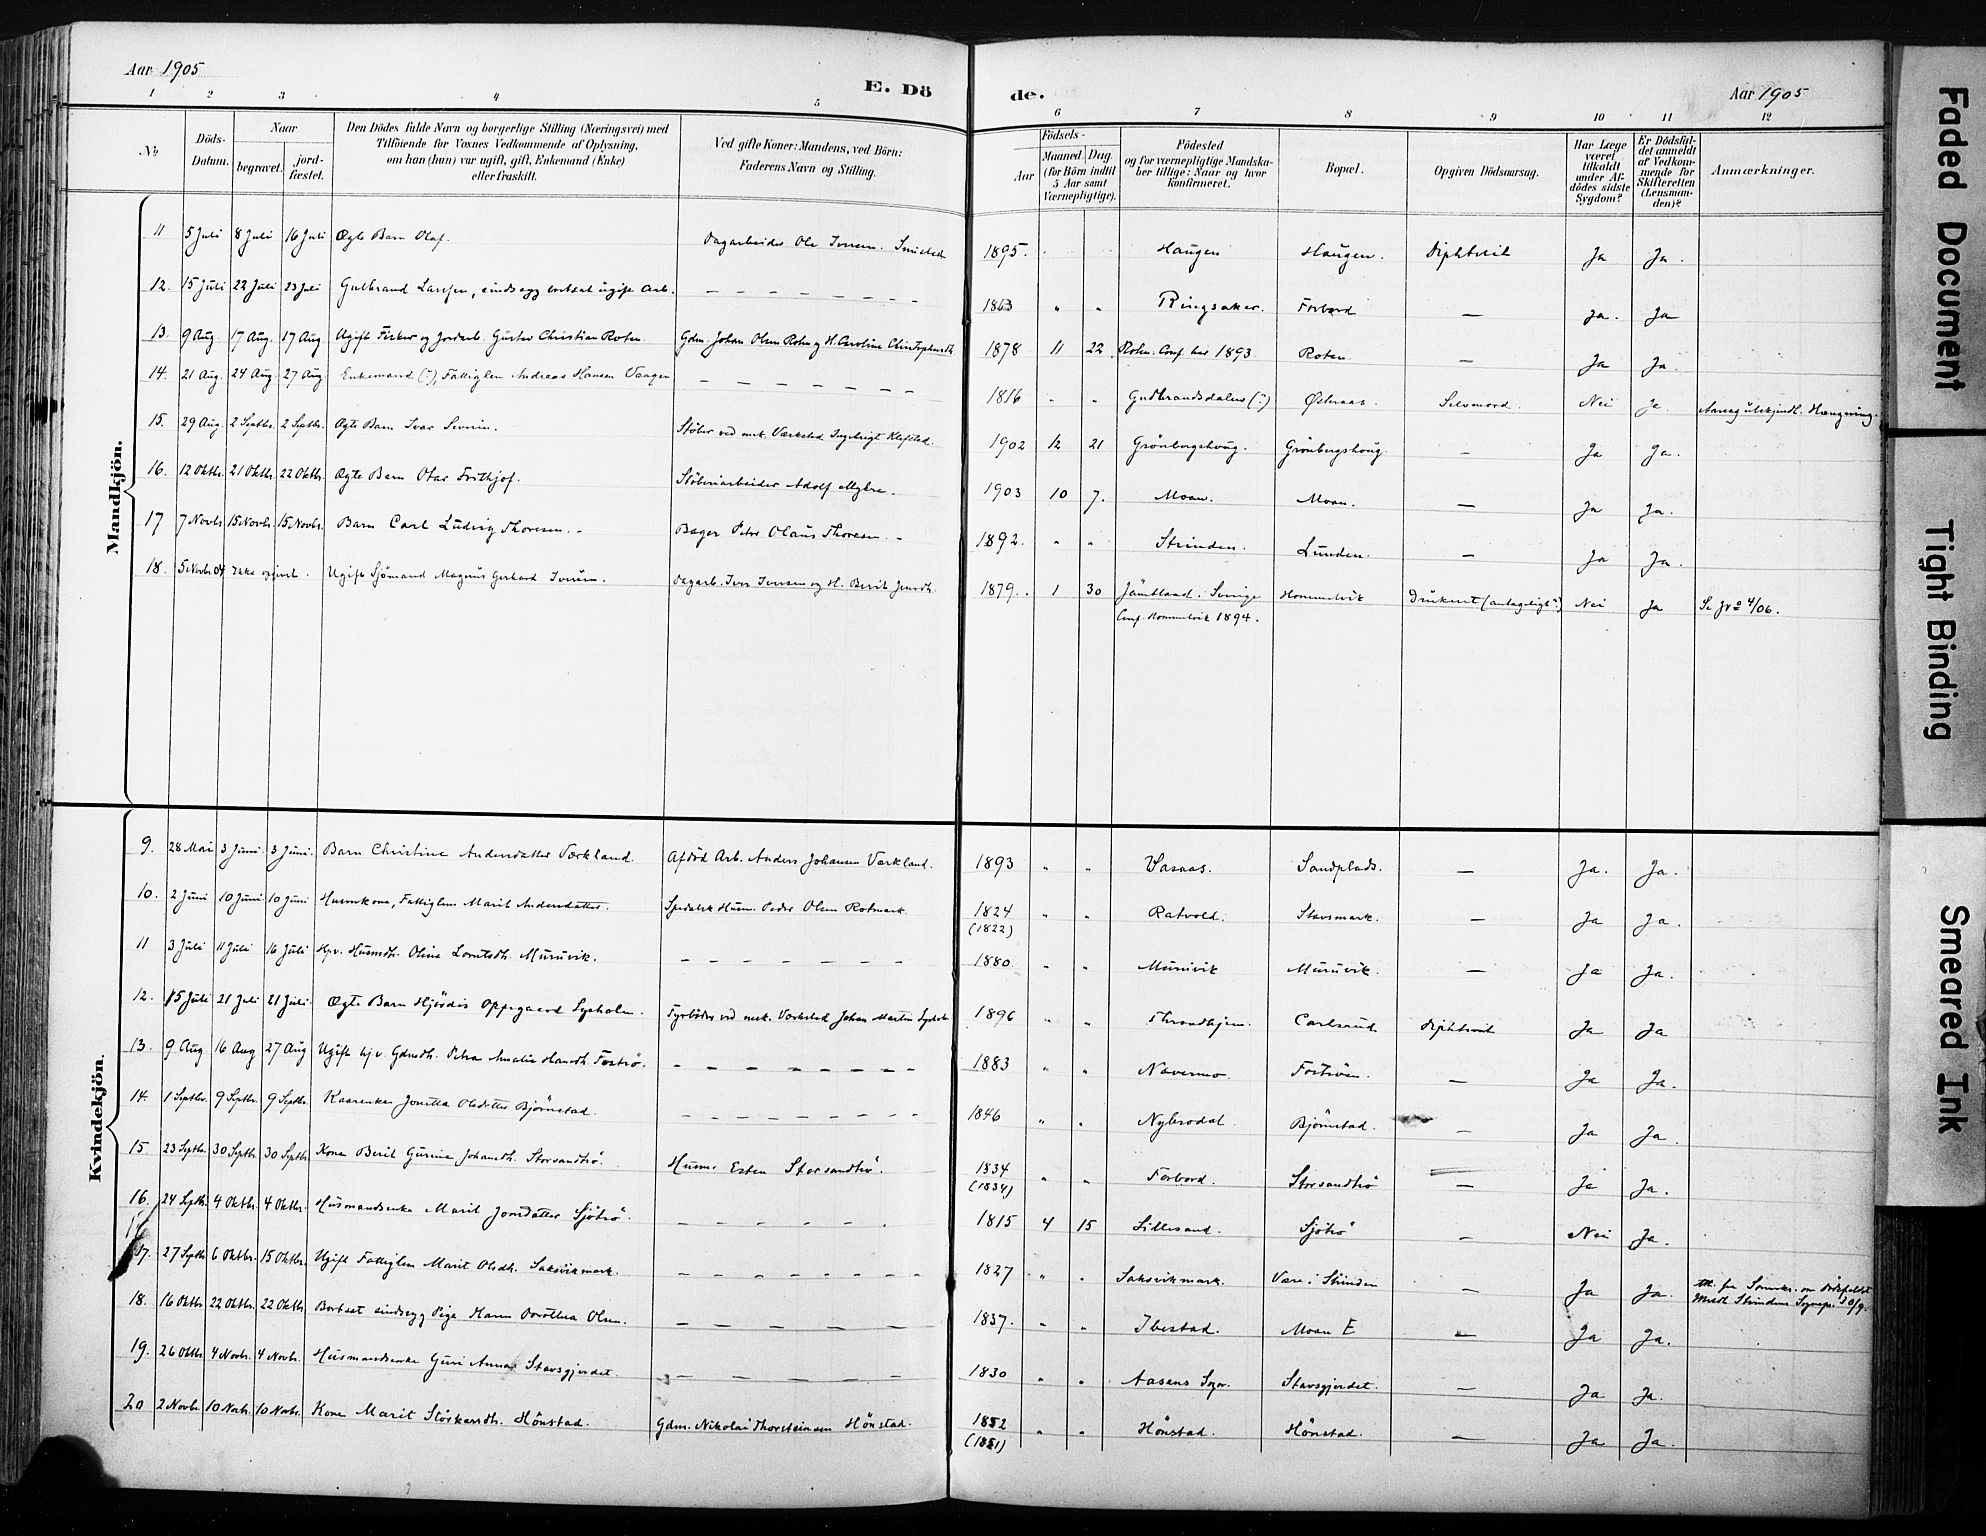 Aar 1905
E. Dö
de.
Aar 1905
1 2 3 4 5 6 7 8 9 10 11 12
No
Döds-Datum.
Naar
begravet.
jord-fæstet.
Den Dödes fulde Navn og borgerlige Stilling (Næringsvei) med
Tilföiende for Voxnes Vedkommende af Oplysning,
om han (hun) var ugift, gift, Enkemand (Enke)
eller fraskilt.
Ved gifte Koner: Mandens, ved Börn:
Faderens Navn og Stilling.
Födsels-
Aar
Maaned. Dag
(for Börn indtil
5 Aar samt
Værnepligtige).
Födested
og for værnepligtige Mandska-
ber tillige: Naar og hvor
konfirmeret.
Bopæl.
Opgiven Dödsaarsag.
Har Læge
været
tilkaldt
under Af-
dödes sidste
Sygdom?
Er Dödsfal-
det anmeldt
af Vedkom-
mende for
Skifteretten
(Lensman-
den)?
Anmærkninger.
Mandkjön.
11 5 Juli 8 Juli 16 Juli Ægte Barn Olaf. Dagarbeider Ole Iversen 1895. Haugen Haugen. Diphterit Ja Ja.
12. 15 Juli 22 Juli 23 Juli Gulbrand Larsen, sindssyg bortsat ugift Arb. – – – – – – – – 1863 " " Ringsaker. Forbord — Ja. Ja
13. 9 Aug. 17 Aug. 17 Aug Ugift Fisker og Jordarb. Gustav Christian Roten Gdm. Johan Olsen Roten og H. Caroline Christophersdt. 1878 11 22 Roten. Conf. her 1893. Roten — Ja Ja.
14. 21 Aug. 24 Aug 27 Aug Enkemand (:), Fattiglem Andreas Hansen Vaagen – – – – – – – – 1816 " " Gudbrandsdalen (:) Østraas. Selvmord. Nei Ja. Aarsag utilskjendl. Hængning.
15. 29 Aug. 2 Septbr. 2 Septbr. Ægte Barn Ivar Severin. Støber ved mek. Værksted Ingebrigt Klefsted. 1902 12 21 Grönbergshoug. Grönbergshoug. — Ja Ja.
16. 12 Oktbr. 21 Oktbr. 22 Oktbr. Ægte Barn Otar Frithjof. Støberiarbeider Adolf Myhre. 1903 10 7. Moan. Moan. — Ja Ja.
17 7 Novbr. 15 Novbr. 15 Novbr. Barn Carl Ludvig Thoresen. Bager Peter Olaus Thoresen. 1892. " " Strinden. Lunden. — Ja Ja.
18. 5 Novbr. 04 Ikke opgivet. Ugift Sjömand Magnus Gerhard Iversen. Dagarb. Iver Iversen og H. Berit Jensdt. 1879. 1 30 Jämtland i Sverige Hommelvik Druknet (antageligt) Nei Ja Se No 4/06.
Conf. Hommelvik 1894.
Kvindekjön.
9. 28 Mai 3 Juni. 3 Juni. Barn Christine Andersdatter Værkland. Afdöd Arb. Anders Johansen Værkland. 1893 " " Vasaas. Sandplads. — Ja. Ja.
10. 2 Juni 10 Juni 10 Juni Husmkone, Fattiglem Marit Andersdatter. Spedalsk Husm. Peder Olsen Rotmark 1824 " " Ratvold. Stavsmark. — Ja Ja.
(1822)
11 3 Juli 11 Juli 16 Juli Hjv. Husmdt. Oline Lorntsdt. Muruvik. – – – – – – – 1880 " " Muruvik Muruvik. — Ja Ja.
12. 15 Juli 21 Juli 21 Juli. Ægte Barn Hjördis Oppegaard Sysholm. Fyrböder ved mek. Værksted Johan Martin 1896 " " Throndhjem. Carlsund Diphterit Ja Ja
13. 9 Aug 16 Aug 27 Aug Ugift hjv. Gdmdt. Petra Amalie Hansdt. Foströ. – – – – – – – – 1883 " " Nævermo. Fostrøen. — Ja Ja.
14. 1 Septbr. 9 Septbr. 9 Septbr. Kaarenke Jonetta Olsdatter Bjørnstad. – – – – – – – – 1846 " " Nybrodal. Bjørnstad. — Ja Ja.
15 23 Septbr. 30 Septbr 30 Septbr Kone Berit Gurine Johansdt. Storsandtrö. Husm. Esten Storsandtrö. 1834 " " Forbord. Storsandtrö — Ja Ja.
(1834)
16. 24 Septbr. 4 Oktbr. 4 Oktbr. Husmandsenke Marit Jonsdatter Sjötrö. – – – – – – 1815 4 15 Lillesand. Sjötrö — Nei Ja.
17. 27 Septbr 6 Oktbr. 15 Oktbr. Ugift Fattiglem Marit Olsdt. Saksvikmark. – – – – – – – – 1827 " " Saksvikmark. Være i Strinden — Ja Ja. Strindens Sognepr. 30/9.
18. 16 Oktbr. 22 Oktbr. 22 Oktbr. Bortsat sindssyg Pige Hanna Dorothea Olsen. – – – – – – 1837. " " Ibestad. Moan E — Ja Ja.
19. 26 Oktbr 4 Novbr. 4 Novbr. Husmandsenke Guri Annas Stavsgjerdet. – – – – – – 1830 " " Aasens Sogn. Stavsgjerdet. — Ja Ja.
20 2 Novbr. 10 Novbr. 10 Novbr. Kone Marit Störkersdt. Hönstad. Gdm. Nikolai Thorsteinsen Hönstad. 1852 " " Hönstad. Hönstad. — Ja Ja.
(1851)
Faded Document
Tight Binding
Smeared Ink